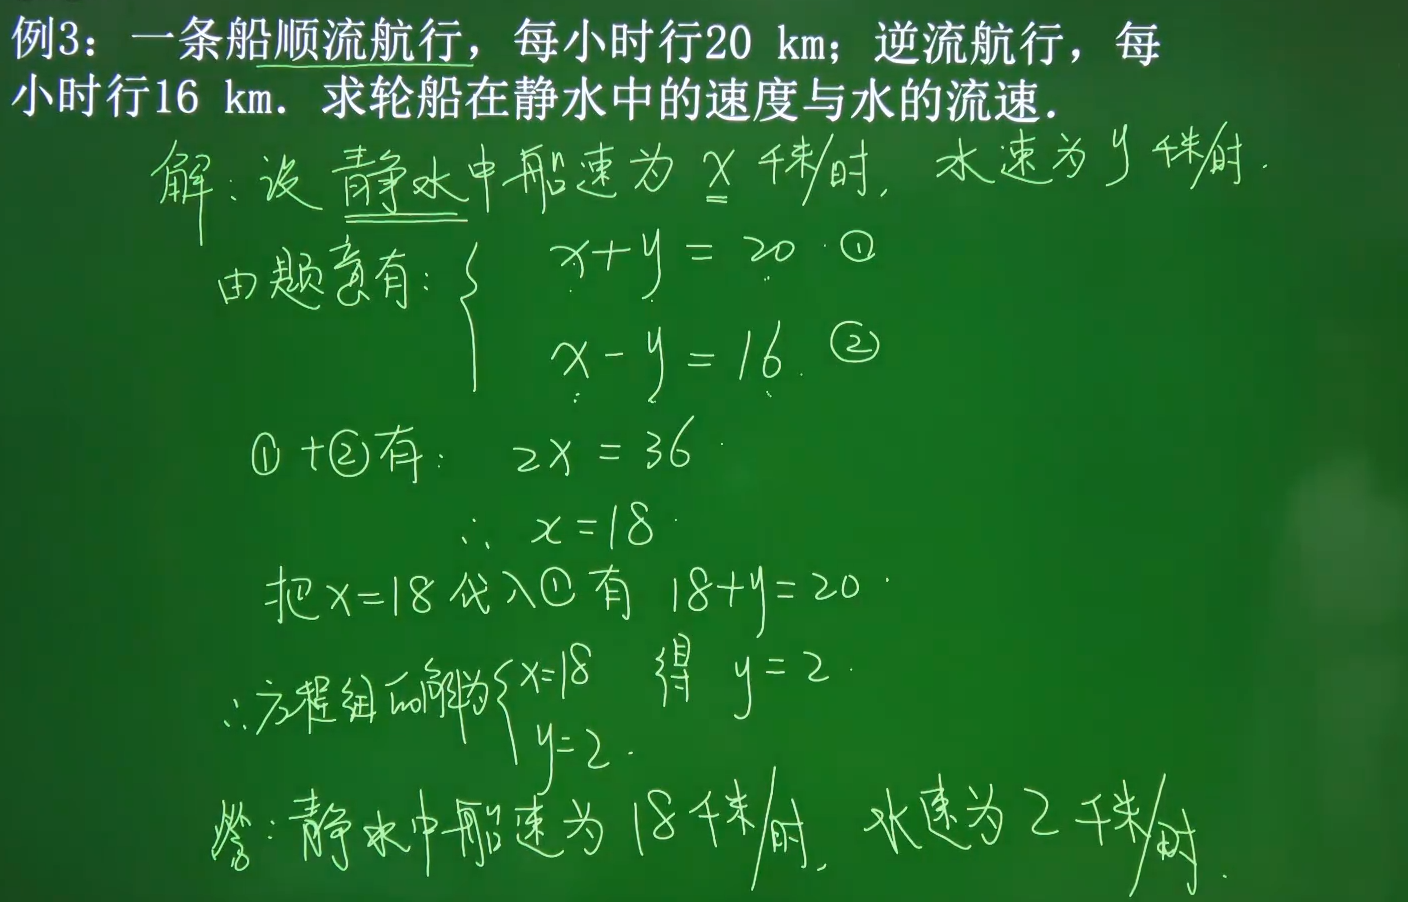 例3：一条船顺流航行，每小时行20 km；逆流航行，每
小时行16 km．求轮船在静水中的速度与水的流速．
解：设静水中船速为x千米/时，水速为y千米/时．
由题意有：{ x+y=20 ①
x-y=16. ②
①+②有： 2x=36.
∴ x=18.
把x=18代入①有 18+y=20.
得 y=2.
∴方程组的解为{ x=18
y=2.
答：静水中船速为18千米/时，水速为2千米/时．